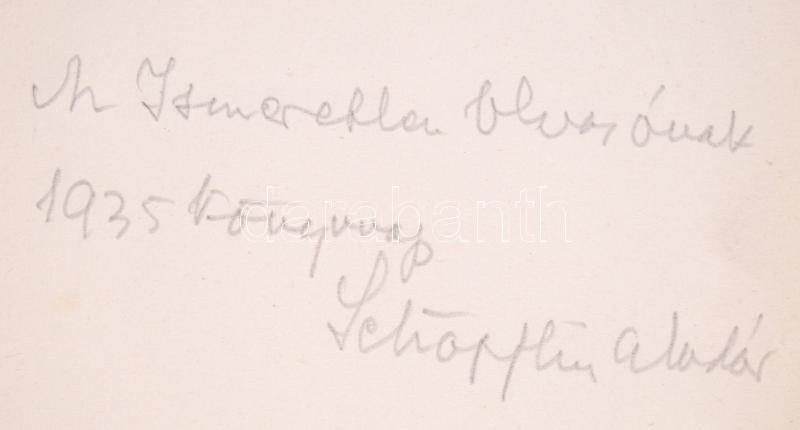 Az Ismeretlen Olvasónak
1935 Könyvnap
darabanth
Schöpflin Aladár